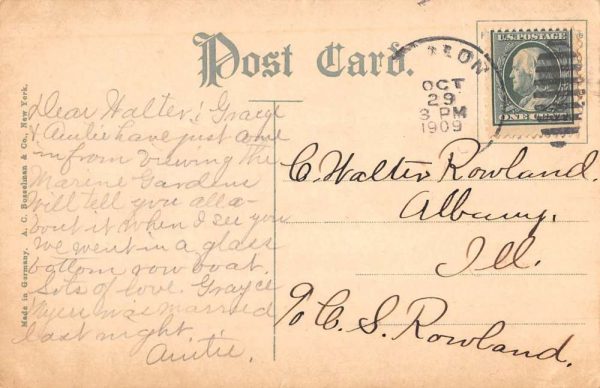 Post Card.
Made in Germany. A. C. Bosselman & Co., New York.
Dear Walter; Grayce
& Auntie have just come
in from viewing the
Marine Gardens
Will tell you all a-
bout it when I see you
we went in a glass
bottom row boat.
Lots of love. Grayce
was married
last night.
Auntie.
OCT
29
3 PM
1909
U.S. POSTAGE
ONE CENT
C. Walter Rowland.
Albany,
Ill.
c/o C. S. Rowland.